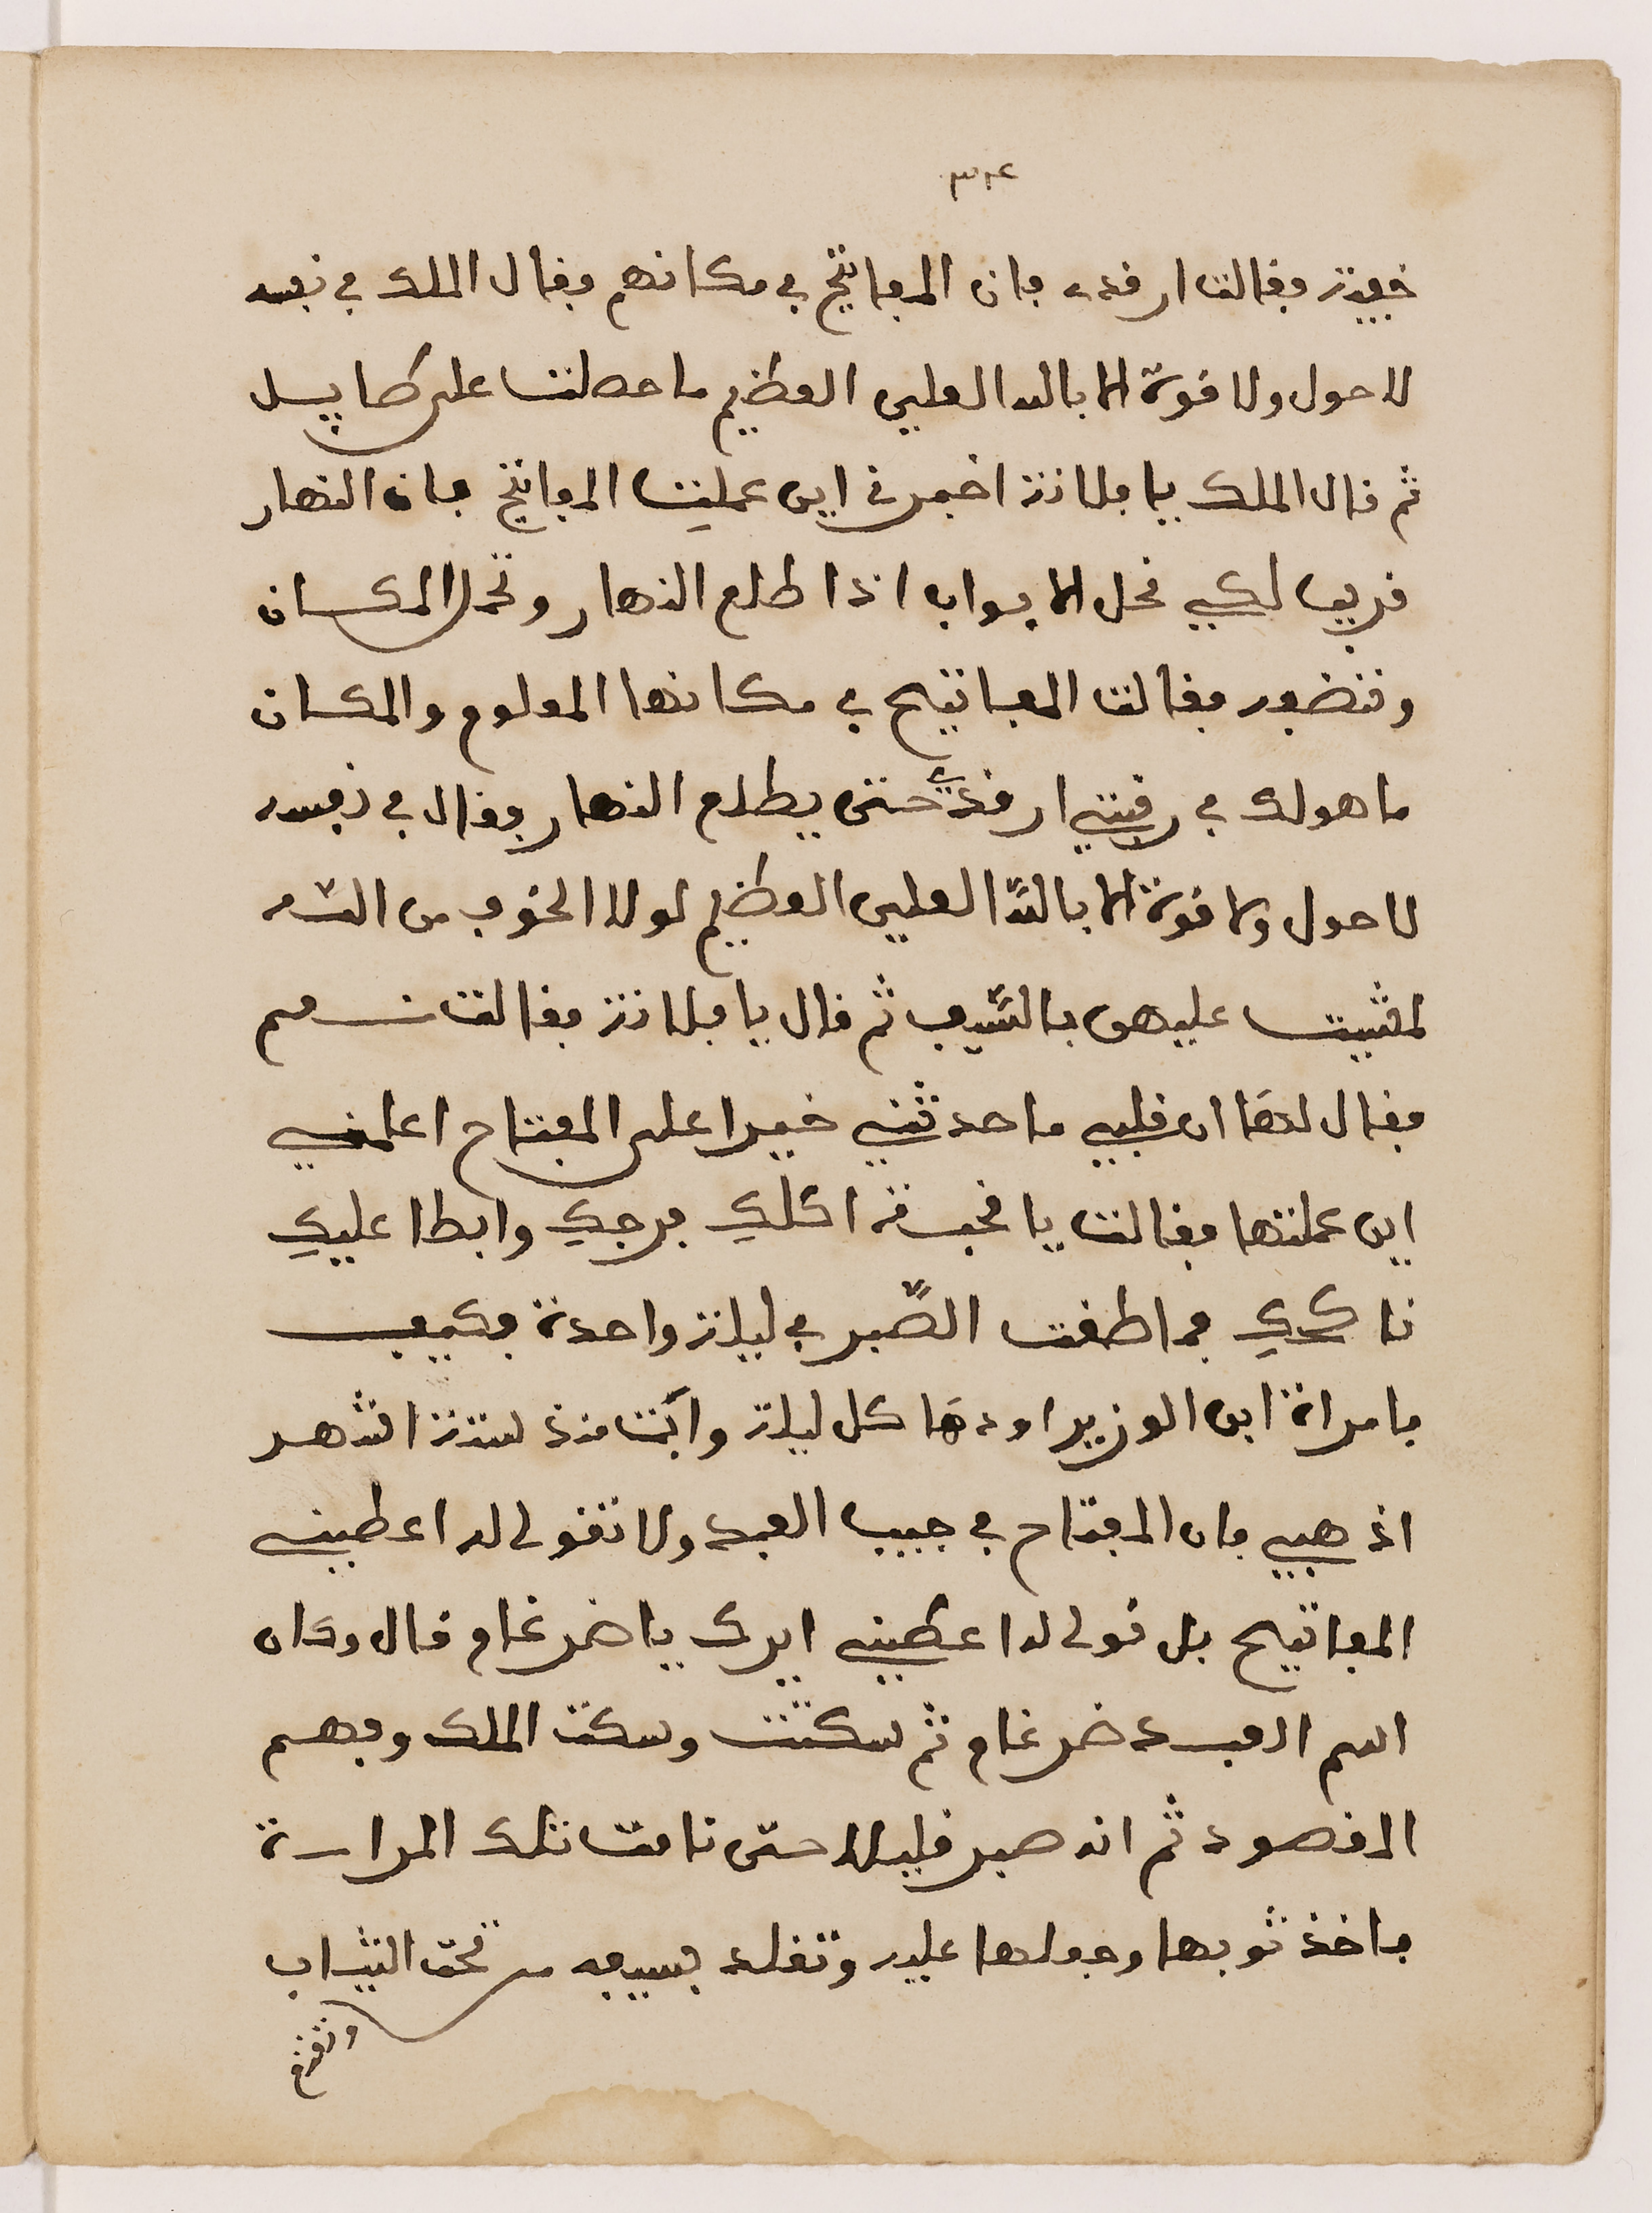 ٣٢٤
خفيفة وفالت ارفدي فان المفاتيح في مكانهم وفال الملك في نفسه
لا حول ولا فوة الا بالله العلي العظيم ما حصلت على طايل
ثم فال الملك يا فلانة اخبرني اين عمليت المفاتيح فان النهار
فريب لكي نحل الابواب اذا طلع النهار ونحل المكان
وننضور وفالت المفاتيح في مكانها المعلوم والمكان
ما هولك في رفبتي ارفدي حتى يطلع النهار وفال في نفسه
لا حول ولا فوة الا بالله العلي العظيم لولا الخوف من الله
لمشيت عليهن بالسيف ثم فال يا فلانة وفالت نعم
وفال لها ان فلبي ما حدثني خيرا على المفتاح اعلمني
اين عملتها وفالت يا فحبة اكلكِ فرجكِ وابطا عليكِ
ناككِ فما اطفت الصبر في ليلة واحدة فكيف
بامراة ابن الوزير اودها كل ليلة وانت منذ ستة اشهر
اذهبي فان المفتاح في جيب العبد ولا تفولي له اعطيني
المفاتيح بل فولي له اعطيني ايرك يا ضرغام فال وكان
اسم العبد ضرغام ثم سكتت وسكت الملك وفهم
المفصود ثم انه صبر فليلا حتى نامت تلك المراة
فاخذ ثوبها وجعلها عليه وتفلد بسيفه من تحت الثياب